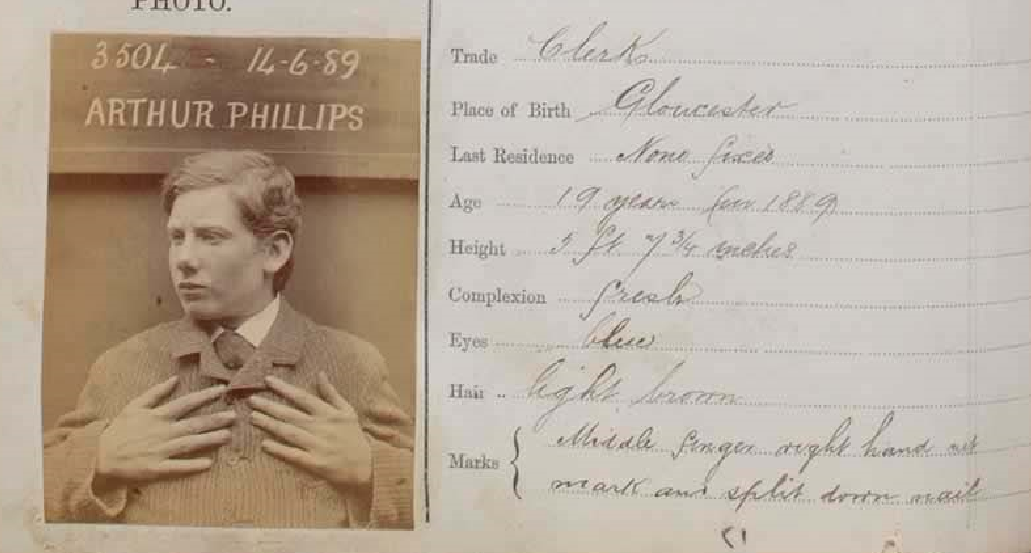 PHOTO.
3504 - 14-6-89
ARTHUR PHILLIPS
Trade Clerk
Place of Birth Gloucester
Last Residence None fixed
Age 19 years (in 1889)
Height 5 ft 7 3/4 inches
Complexion fresh
Eyes blue
Hair light brown
Marks { Middle finger right hand cut
mark and split down nail